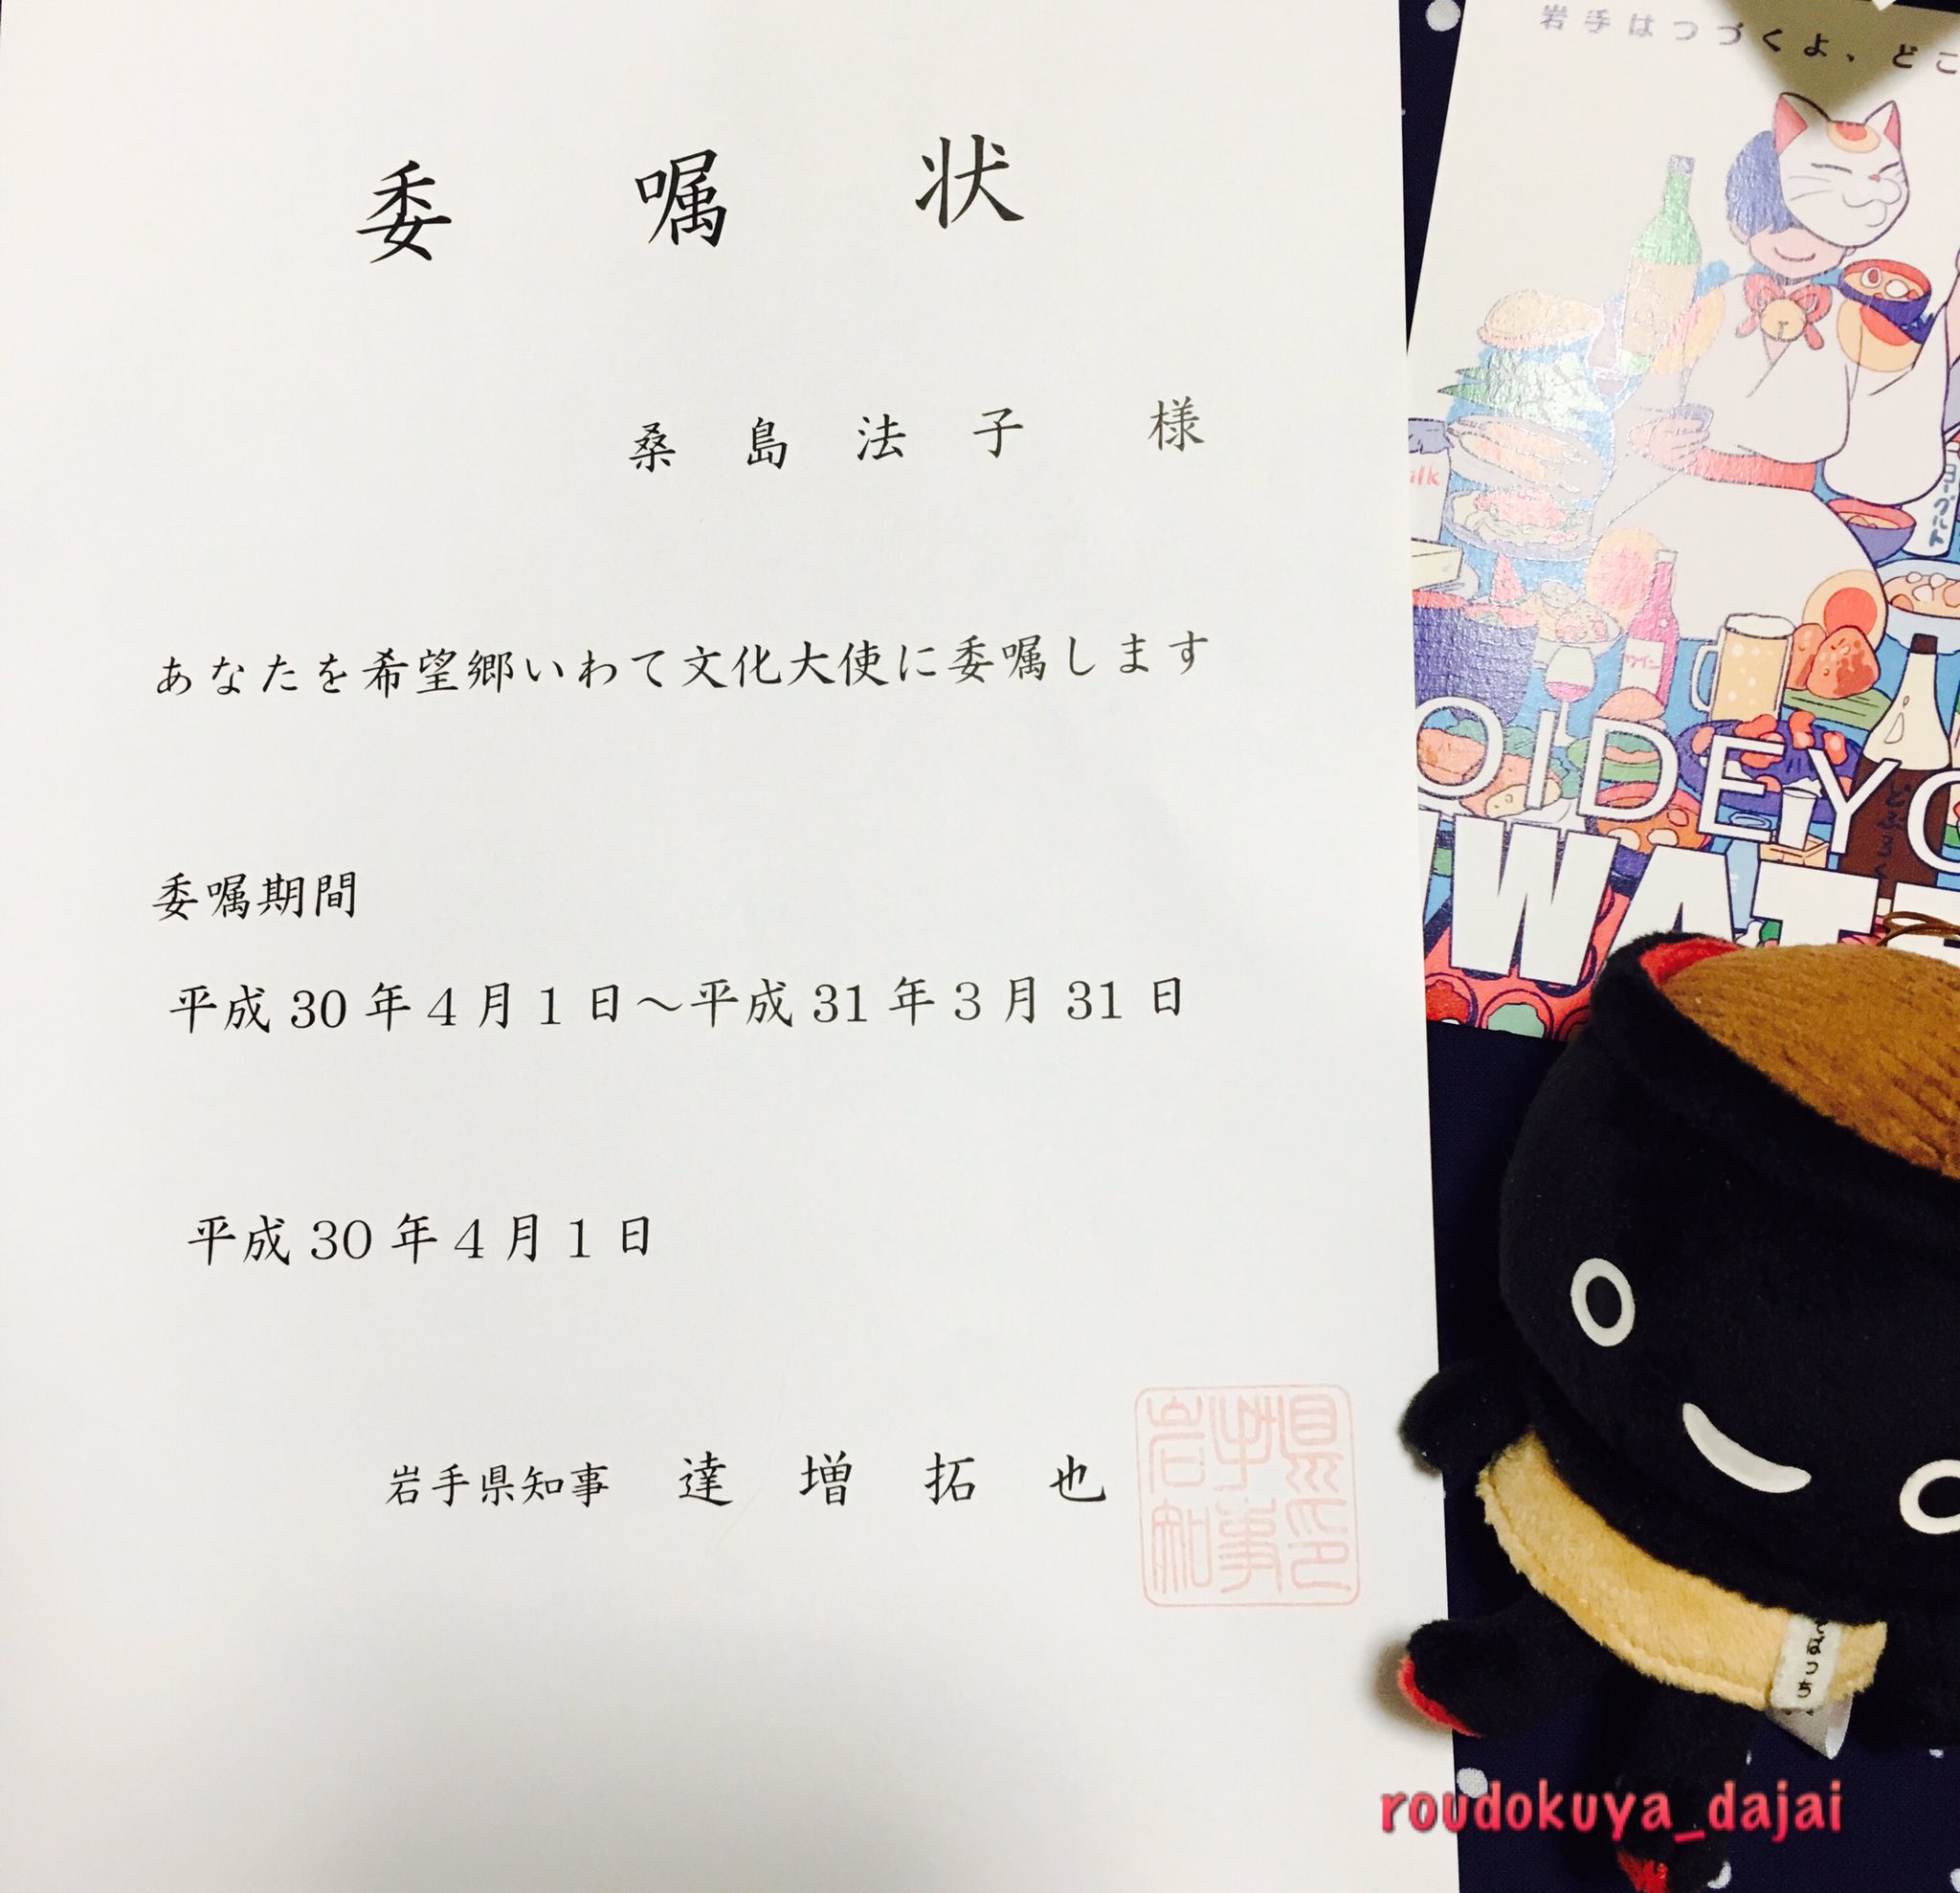 委嘱状
桑島法子 様
あなたを希望郷いわて文化大使に委嘱します
委嘱期間
平成30年4月1日～平成31年3月31日
平成30年4月1日
岩手県知事 達増拓也
岩手県
知事印
岩手はつづくよ、どこ
ilk
ヨーグルト
ワイン
どぶろく
OIDEYO
IWATE
そばっち
roudokuya_dajai